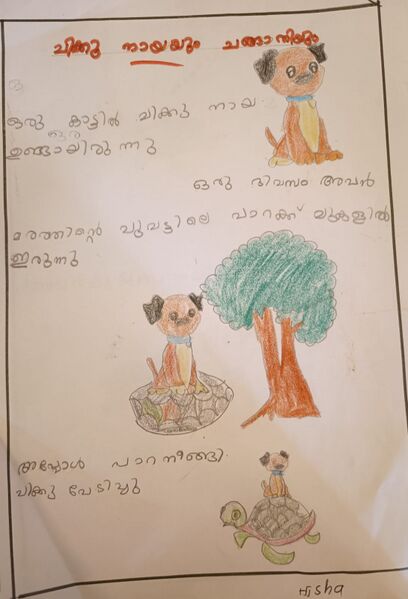 ചിക്കു നായയും ചങ്ങാതിയും
ഒരു കാട്ടിൽ ചിക്കു നായ
ഒരു
ഉണ്ടായിരുന്നു
ഒരു ദിവസം അവൻ
മരത്തിന്റെ ചുവട്ടിലെ പാറക്ക് മുകളിൽ
ഇരുന്നു
അപ്പോൾ പാറ നീങ്ങി.
ചിക്കു പേടിച്ചു
sha